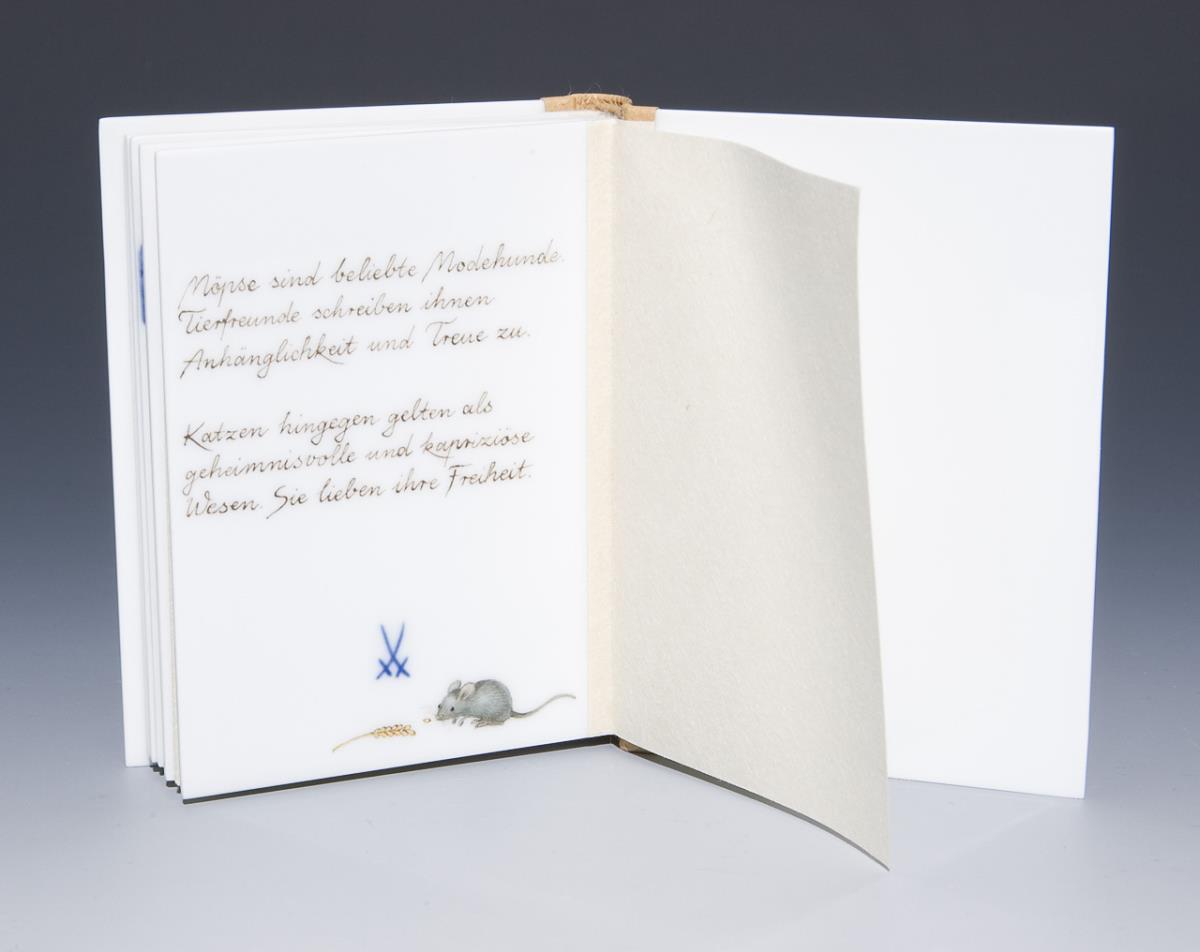 Möpse sind beliebte Modehunde.
Tierfreunde schreiben ihnen
Anhänglichkeit und Treue zu.
Katzen hingegen gelten als
geheimnisvolle und kapriziöse
Wesen. Sie lieben ihre Freiheit.